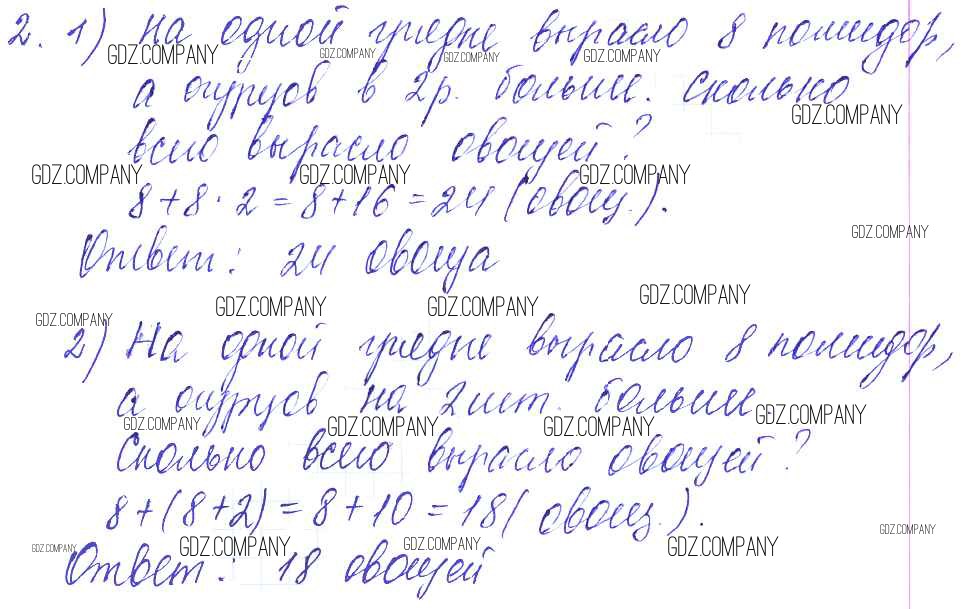 2. 1) На одной грядке выросло 8 помидор,
GDZ.COMPANY GDZ.COMPANY GDZ.COMPANY GDZ.COMPANY
а огурцов в 2р. больше. Сколько
GDZ.COMPANY
всего выросло овощей?
GDZ.COMPANY GDZ.COMPANY GDZ.COMPANY
8+8·2=8+16=24 (овощ.).
GDZ.COMPANY
Ответ: 24 овоща
GDZ.COMPANY GDZ.COMPANY GDZ.COMPANY
GDZ.COMPANY
2) На одной грядке выросло 8 помидор,
а огурцов на 2шт. больше
GDZ.COMPANY GDZ.COMPANY GDZ.COMPANY GDZ.COMPANY
Сколько всего выросло овощей?
8+(8+2)=8+10=18( овощ.).
GDZ.COMPANY
GDZ.COMPANY GDZ.COMPANY GDZ.COMPANY GDZ.COMPANY
Ответ: 18 овощей